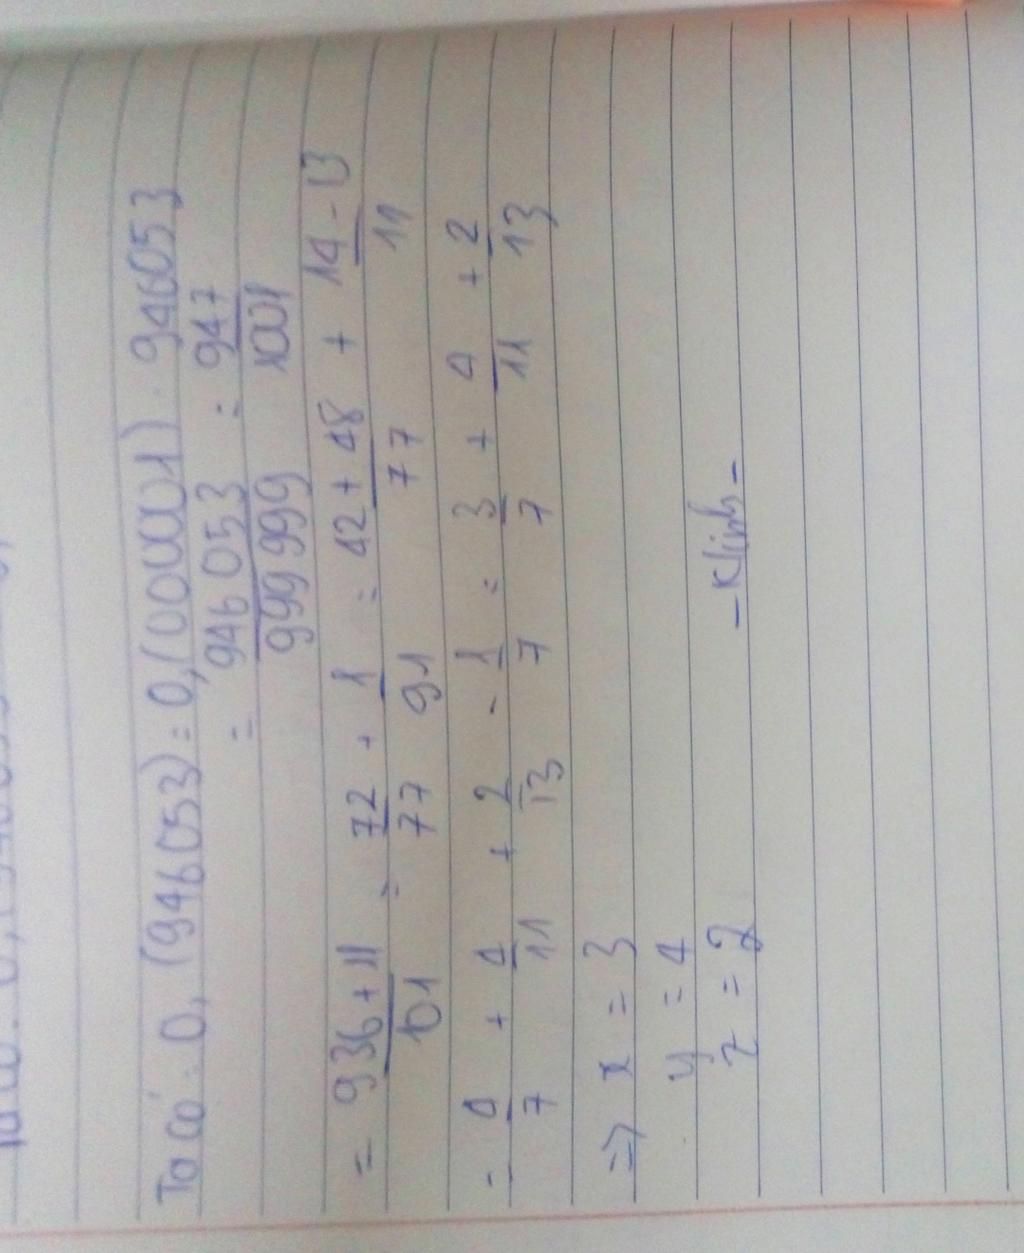 Ta có: 0,(946053) = 0,(000001) . 946053
= 946 053 / 999 999 = 947 / 1001
= 936 + 11 / 1001 = 72 / 77 + 1 / 91 = 42 + 48 / 77 + 14 - 13 / 91
= 4 / 7 + 4 / 11 + 2 / 13 - 1 / 7 = 3 / 7 + 4 / 11 + 2 / 13
=> x = 3
y = 4
z = 2